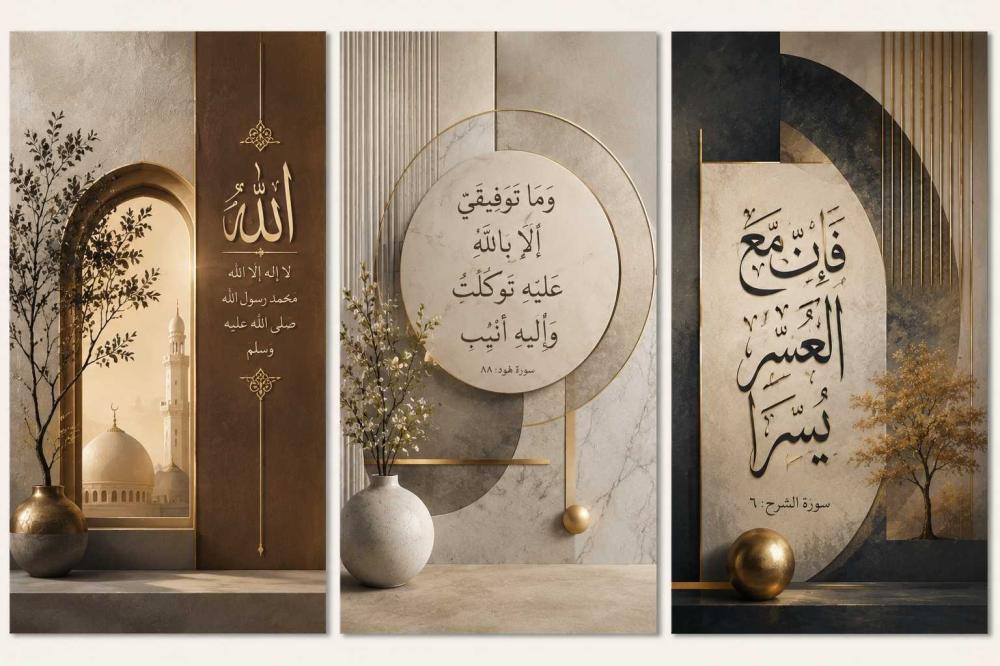 الله
لا إله إلا الله
محمد رسول الله
صلى الله عليه
وسلم
وَمَا تَوَفِيقَيّ
إلَاِ بِاللَّهِ
عَليْهِ تَوَكَلْتُ
وَإليهِ أنَيْبِ
سورة هود: ٨٨
فَإِنّ مَّعَ
العُسِّرِ
يُسِّرَا
سورة الشرح: ٦